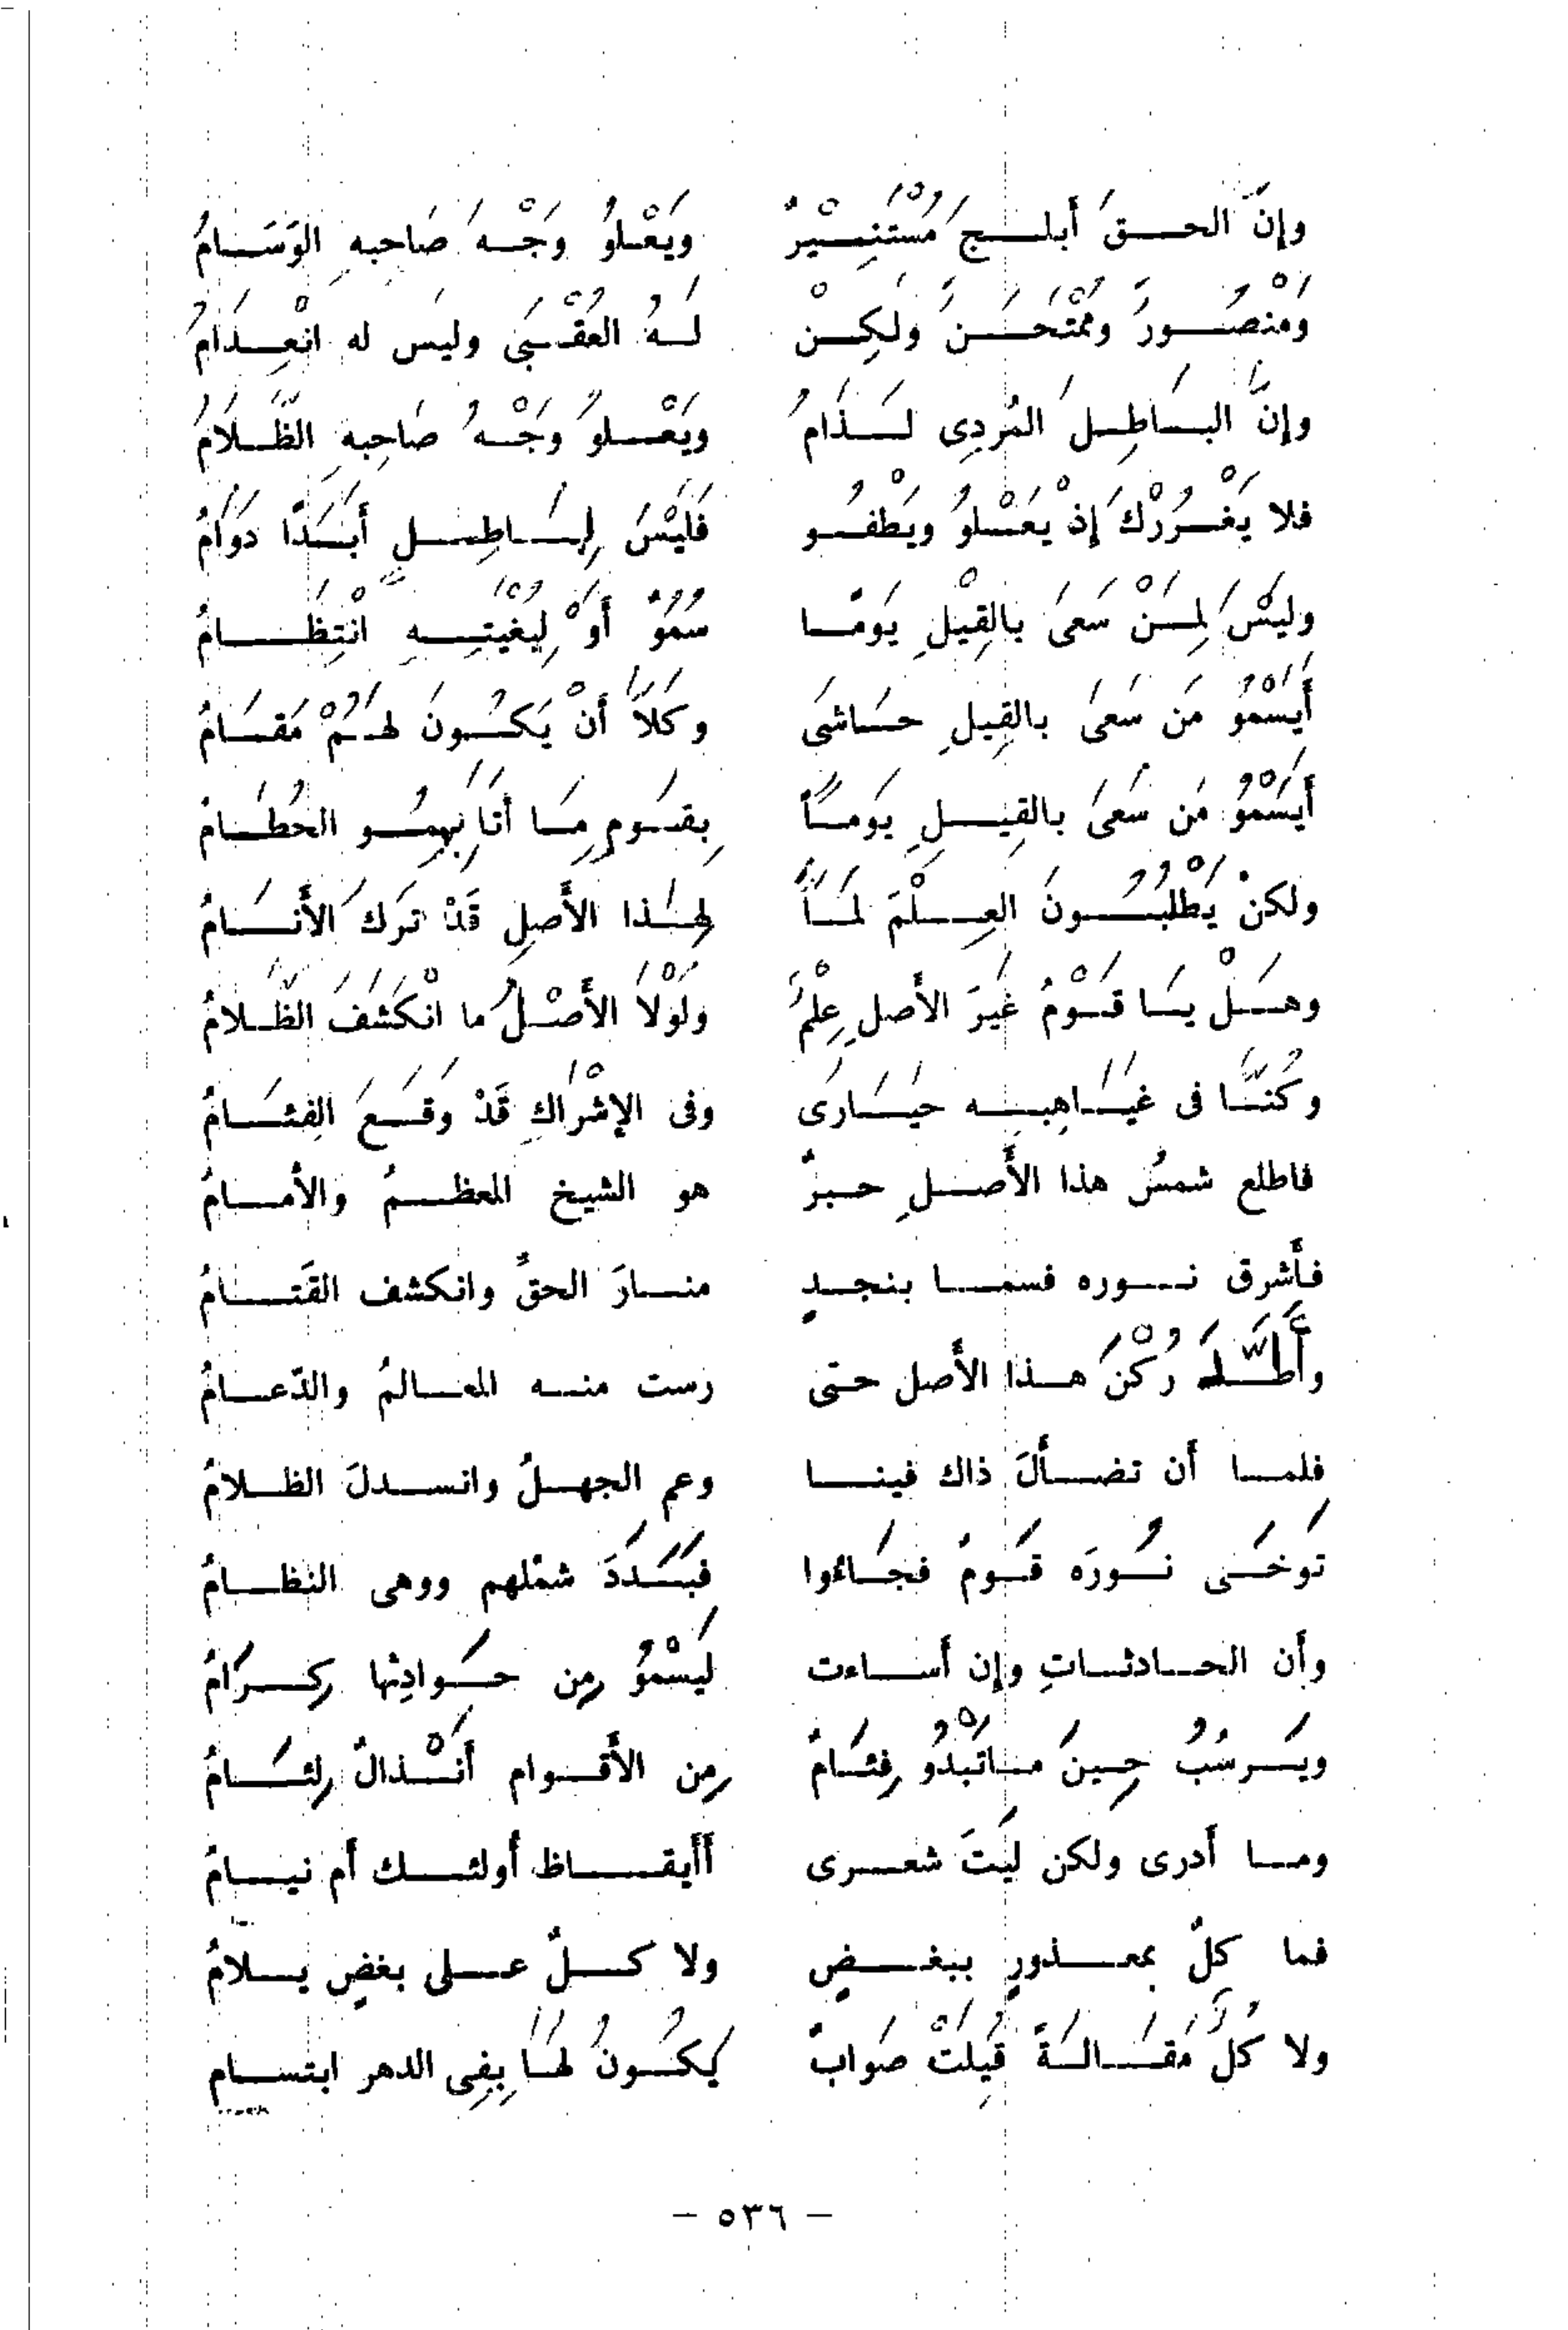 وإنَّ الحـقَّ أبلـج مُسْتَنِيْرٌ ويَعْلوُ وَجْـهَ صَاحِبهِ الوَسَـامُ
ومَنْصُـورَ ومُمْتَحَـنَ ولَكِـنْ لَـهُ العُقْـبَى وليَس له انْعِـدَامُ
وإنَّ البـاطِـلَ المُردِى لَـذَامُ ويَعْـلوُ وَجْـهُ صَاحِبهِ الظَّـلَامُ
فلا يَغْـرُرْكَ إذْ يَعْـلوُ ويَطْفُـو فَلَيْسَ لِبَـاطِـلٍ أبَـدًا دَوَامُ
وليَسَ لِمَـنْ سَعَىَ بالقِيْلِ يَومًـا سُمُوٌ أوْ لِبُغْيَتِـهِ انْتِظَـامُ
أَيَسْمُوُ مَن سَعَىَ بالقِيلِ حَـاشَى وكَلاَّ أنْ يَكُـونَ لهُـمْ مَقَـامُ
أَيَسْمُوُ مَن سَعَىَ بالقِيـلِ يَومـاً بِقَـومٍ مِـا أتَا بِهِمُـو الحُطَـامُ
ولكنْ يَطْلُبُـونَ العِـلْمَ لَمَـاً لِهَـذا الأَصلِ قَدْ تَرَكَ الأَنَـامُ
وهَـلْ يَـا قَـوْمُ غَيرَ الأَصلِ عِلْمٌ ولَوْلاَ الأَصْـلُ ما انْكَشَفَ الظَّـلامُ
وكُنَّـا فى غَيَـاهِبـه حَيَـارَى وفى الإشْرَاكِ قَدْ وَقَـعَ الفِئَـامُ
فاطلع شمسُ هذا الأَصـلِ حـبرٌ هو الشيخ المعظـمُ والأمـامُ
فأَشرق نـوره فسمـا بنجـدٍ منـارَ الحقِّ وانكشف القَتَـامُ
وأَطَّـدَ رُكْنَ هـذا الأَصل حـتى رست منـه المعـالمُ والدّعـامُ
فلمـا أن تضـأَلَ ذاك فينـا وعم الجهـلُ وانسـدلَ الظـلامُ
تَوخَـى نُـورَه قَـومٌ فجَـاءُوا فَبَـدَدَ شمْلهم ووهى النظـامُ
وأَن الحـادثـاتِ وإن أَسـاءت لَيَسْمُوُ مِن حَـوادِثها كِـرَامُ
ويَـرسُبُ حِـينَ مـاتَبْدُو فِئَـامٌ مِن الأَقـوام أَنْـذالٌ لِئَـامُ
ومـا أَدرى ولكن لَيتَ شعـرى أَأَيقـاظ أُولئـك أَم نيـامُ
فما كلٌ بمعـذورٍ ببغـضٍ ولا كـلٌ عـلى بغضٍ يـلَامُ
ولا كُلُّ مَقَـالـةً قَيلَتْ صَوابٌ يَكُـونُ لهَـا بِفِى الدهر ابتسـام
– ٥٣٦ –